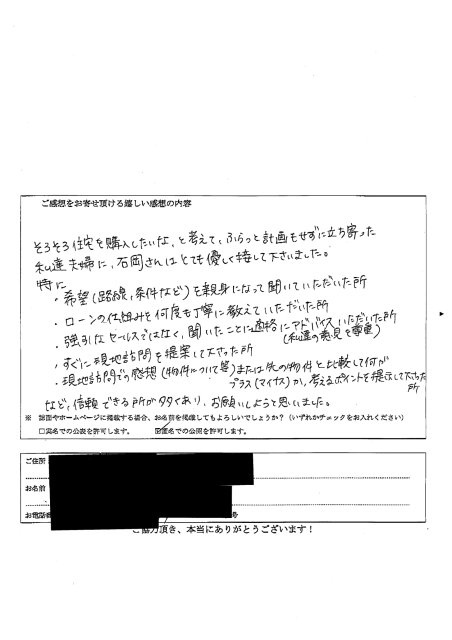 ご感想をお寄せ頂ける嬉しい感想の内容
そろそろ住宅を購入したいな、と考えて、ふらっと計画もせずに立ち寄った
私達夫婦に、石岡さんはとても優しく接して下さいました。
特に
・希望(路線、条件など)を親身になって聞いていただいた所
・ローンの仕組みを何度も丁寧に教えていただいた所
・強引なセールスではなく、聞いたことに適格にアドバイスいただいた所
(私達の意見を尊重)
・すぐに現地訪問を提案して下さった所
・現地訪問での感想(物件について等)または先の物件と比較して何が
プラス(マイナス)か、考えるポイントを提示して下さった
所
など、信頼できる所が多くあり、お願いしようと思いました。
※ 誌面やホームページに掲載する場合、お名前を掲載してもよろしいでしょうか?(いずれかチェックをお入れください)
□実名での公表を許可します。 ☑匿名での公開を許可します。
ご住所
お名前
お電話番 号
ご協力頂き、本当にありがとうございます!